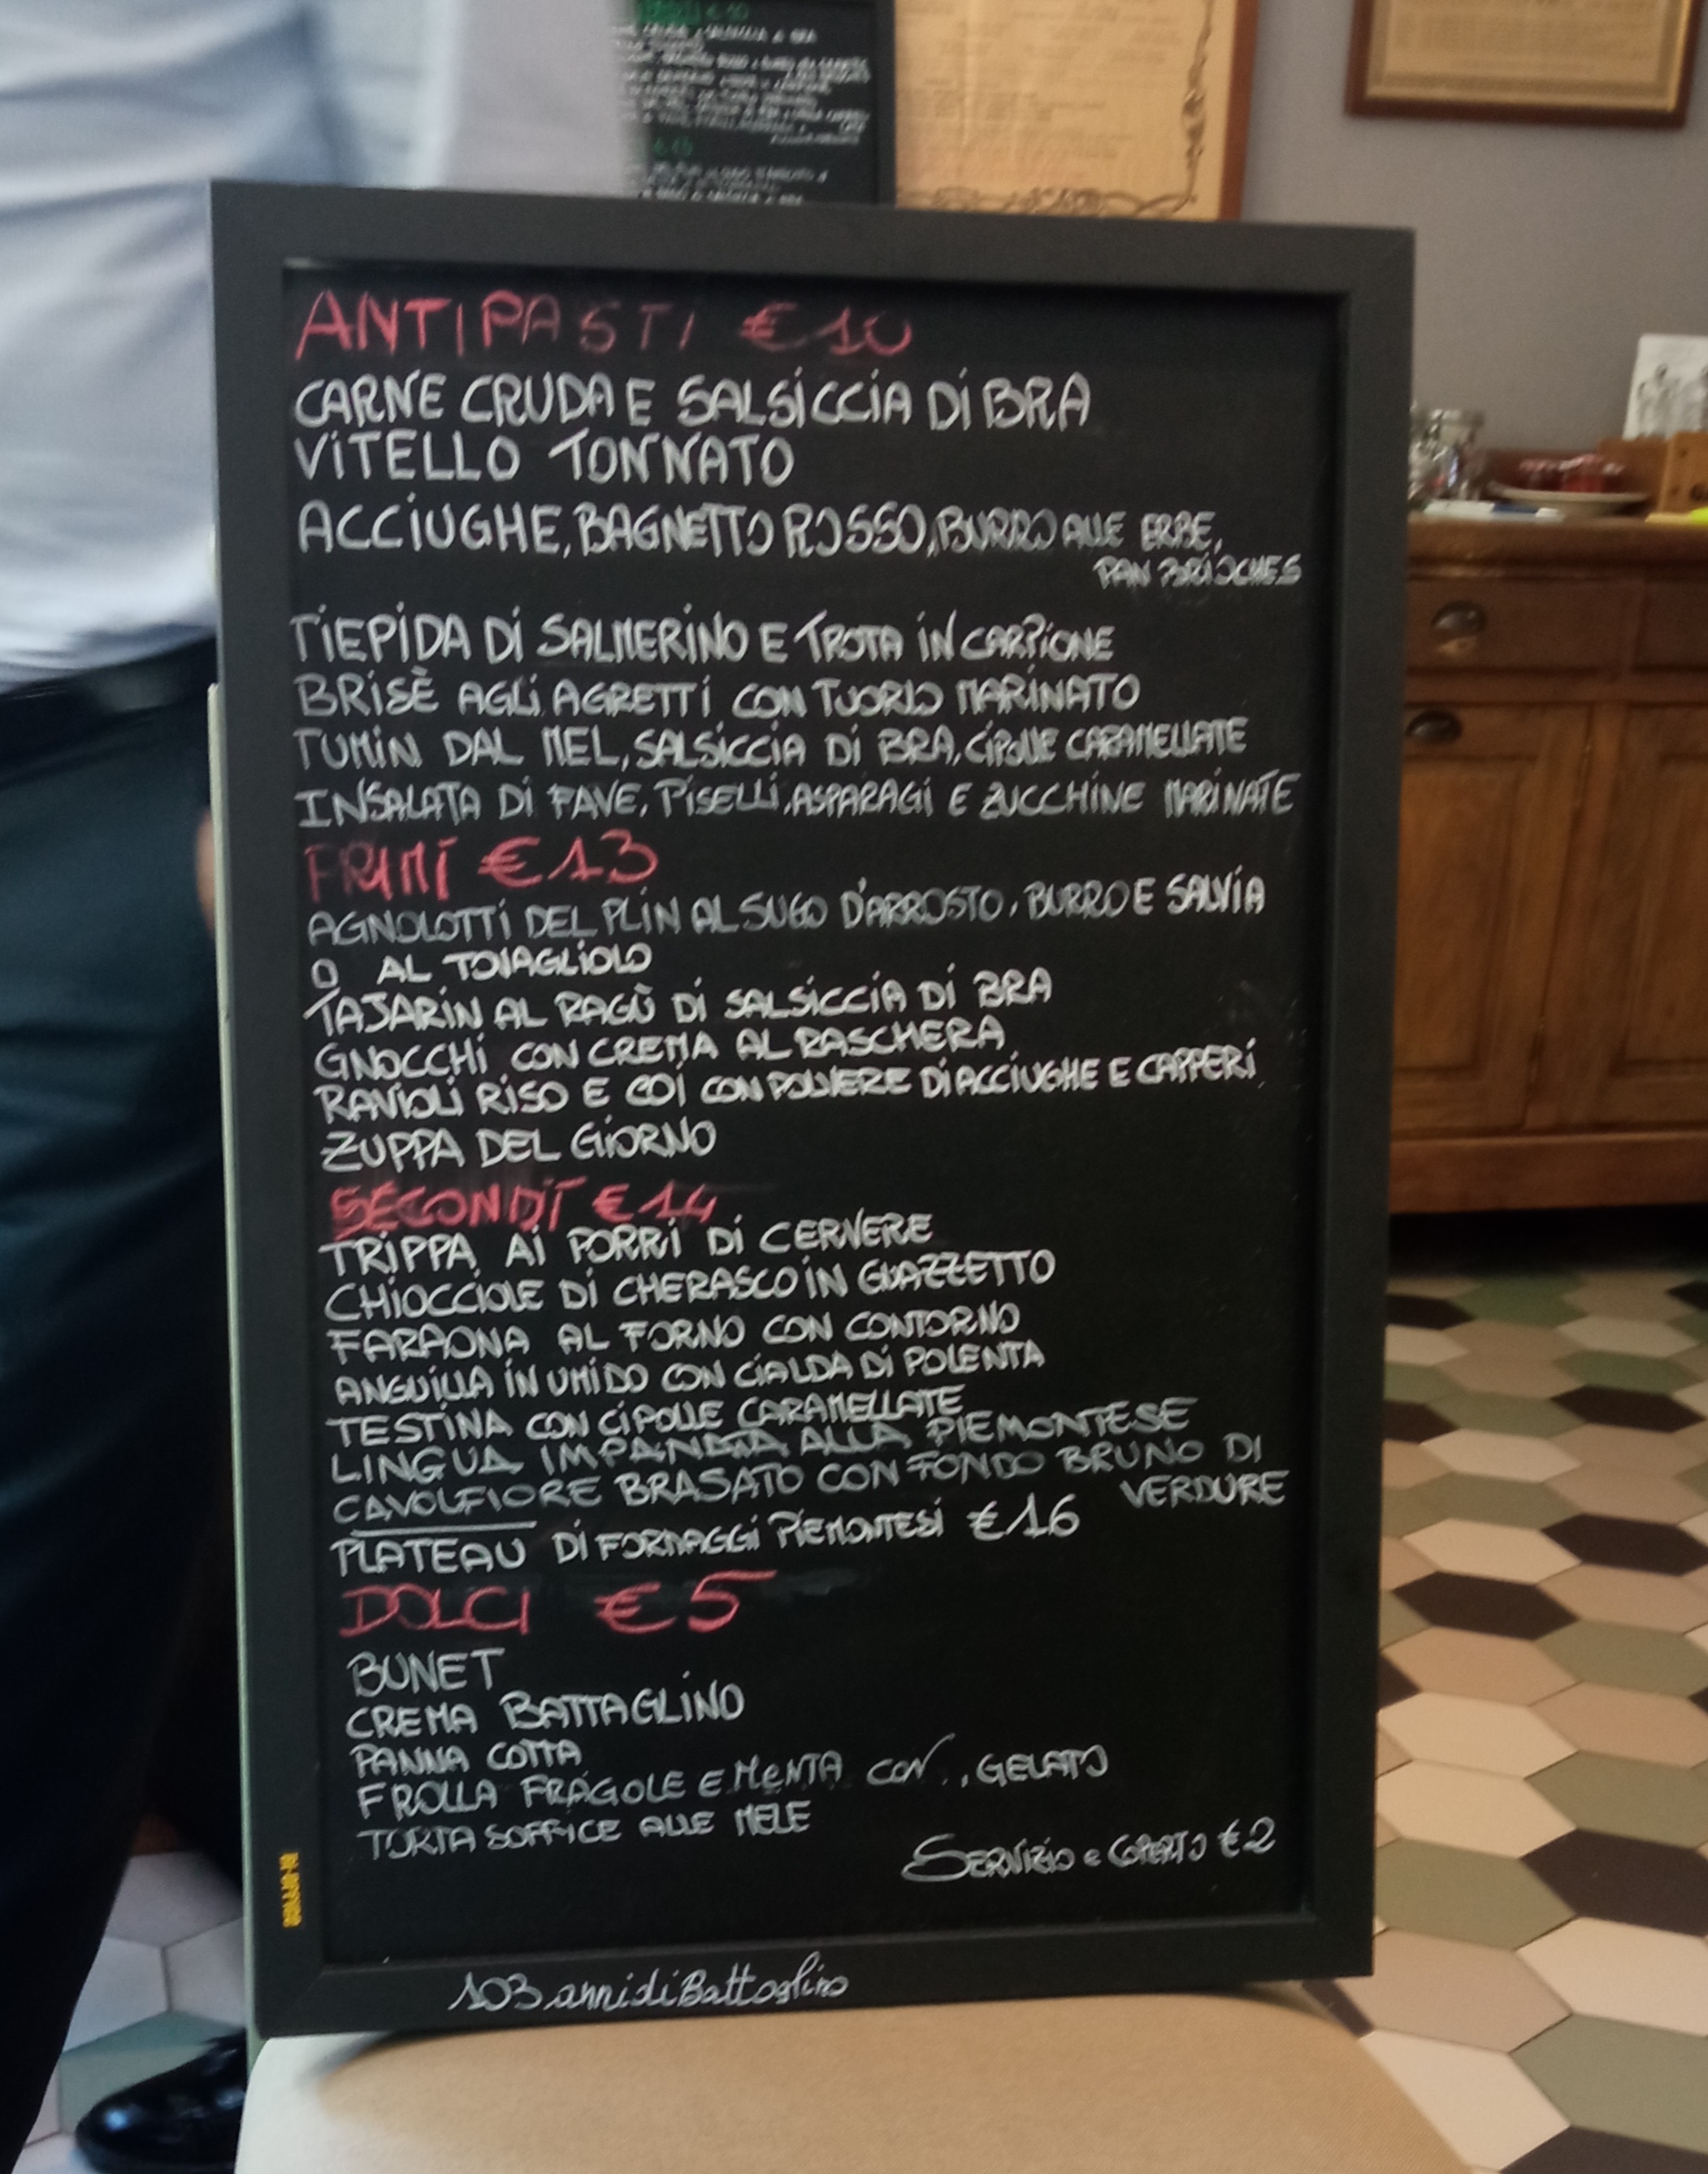 ANTIPASTI €10
CARNE CRUDA E SALSICCIA DI BRA
VITELLO TONNATO
ACCIUGHE, BAGNETTO ROSSO, BURRO ALLE ERBE,
PAN BRIOCHES
TIEPIDA DI SALMERINO E TROTA IN CARPIONE
BRISÈ AGLI AGRETTI CON TUORLO MARINATO
TUMIN DAL MEL, SALSICCIA DI BRA, CIPOLLE CARAMELLATE
INSALATA DI FAVE, PISELLI, ASPARAGI E ZUCCHINE MARINATE
PRIMI €13
AGNOLOTTI DEL PLIN AL SUGO D'ARROSTO, BURRO E SALVIA
O AL TOVAGLIOLO
TAJARIN AL RAGÙ DI SALSICCIA DI BRA
GNOCCHI CON CREMA AL RASCHERA
RAVIOLI RISO E COI CON POLVERE DI ACCIUGHE E CAPPERI
ZUPPA DEL GIORNO
SECONDI €14
TRIPPA AI PORRI DI CERVERE
CHIOCCIOLE DI CHERASCO IN GUAZZETTO
FARAONA AL FORNO CON CONTORNO
ANGUILLA IN UMIDO CON CIALDA DI POLENTA
TESTINA CON CIPOLLE CARAMELLATE
LINGUA IMPANATA ALLA PIEMONTESE
CAVOLFIORE BRASATO CON FONDO BRUNO DI
VERDURE
PLATEAU DI FORMAGGI PIEMONTESI €16
DOLCI €5
BUNET
CREMA BATTAGLINO
PANNA COTTA
FROLLA FRAGOLE E MENTA CON , GELATO
TORTA SOFFICE ALLE MELE
SERVIZIO e COPERTO €2
103 anni di Battaglino